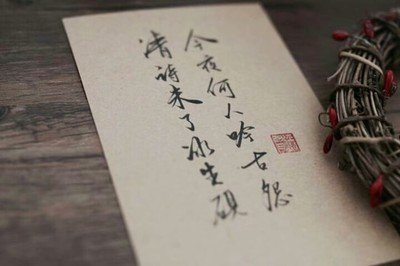 今夜何人吟古怨
清诗未了冰生砚